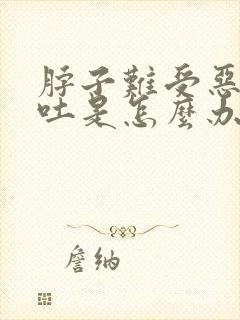 脖子難受惡
吐是怎麼办
詹納